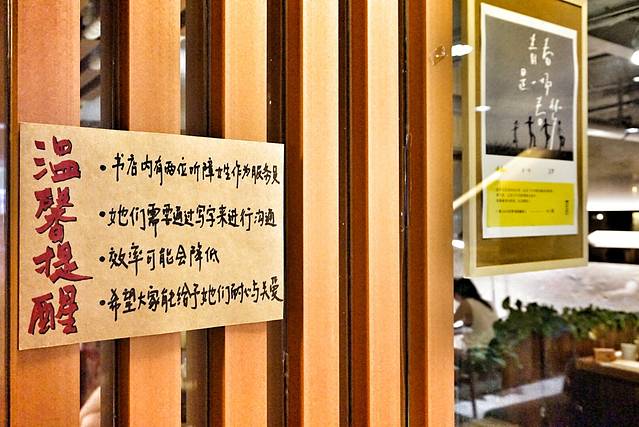 温馨提醒
·书店内有两位听障女生作为服务员
·她们需要通过写字来进行沟通
·效率可能会降低
·希望大家能给予她们耐心与关爱
青春
是一场